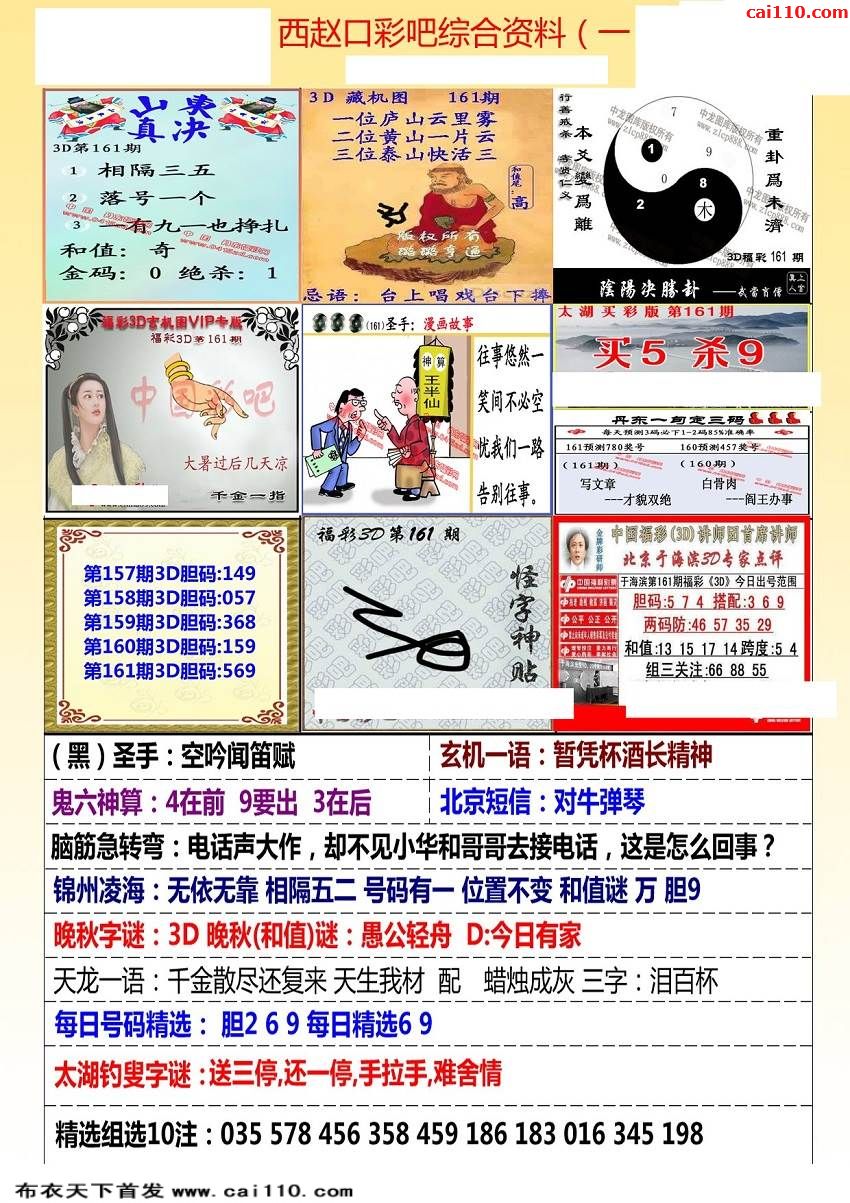 cai110.com
西赵口彩吧综合资料（一
山东真决
3D第161期
1 相隔三五
2 落号一个
3 一有九一也挣扎
和值：奇
金码：0 绝杀：1
3D 藏机图 161期
一位庐山云里雾
二位黄山一片云
三位泰山快活三
和值尾：高
版权所有
忌语：台上唱戏台下摔
行善戒杀 孝贤仁义
中龙图库版权所有
www.zlcp888.com
本爻變爲離
重卦爲未濟
7
1
9
0
8
2
木
3D福彩 161 期
陰陽决勝卦——武當肖僧
福彩3D玄机图VIP专版
福彩3D第161期
中国彩吧
大暑过后几天凉
千金一指
(161)圣手：漫画故事
神算
王半仙
往事悠然一
笑间不必空
忧我们一路
告别往事。
太湖买彩版 第161期
买5 杀9
丹东一句定三码
每天预测3码必下1-2码85%准确率
161预测780奖号 160预测457奖号
（161期） （160期）
写文章 白骨肉
---才貌双绝 ---阎王办事
第157期3D胆码:149
第158期3D胆码:057
第159期3D胆码:368
第160期3D胆码:159
第161期3D胆码:569
福彩3D第161 期
怪字神贴
金牌彩研师
中国福彩(3D)讲师团首席讲师
北京于海滨3D专家点评
中国福利彩票
公平 公正 公开
于海滨第161期福彩《3D》今日出号范围
胆码:5 7 4 搭配:3 6 9
两码防:46 57 35 29
和值:13 15 17 14 跨度:5 4
组三关注:66 88 55
(黑)圣手：空吟闻笛赋
玄机一语：暂凭杯酒长精神
鬼六神算：4在前 9要出 3在后
北京短信：对牛弹琴
脑筋急转弯：电话声大作，却不见小华和哥哥去接电话，这是怎么回事？
锦州凌海：无依无靠 相隔五二 号码有一 位置不变 和值谜 万 胆9
晚秋字谜：3D 晚秋(和值)谜：愚公轻舟 D:今日有家
天龙一语：千金散尽还复来 天生我材 配 蜡烛成灰 三字：泪百杯
每日号码精选： 胆2 6 9 每日精选6 9
太湖钓叟字谜：送三停,还一停,手拉手,难舍情
精选组选10注：035 578 456 358 459 186 183 016 345 198
布衣天下首发 www.cai110.com